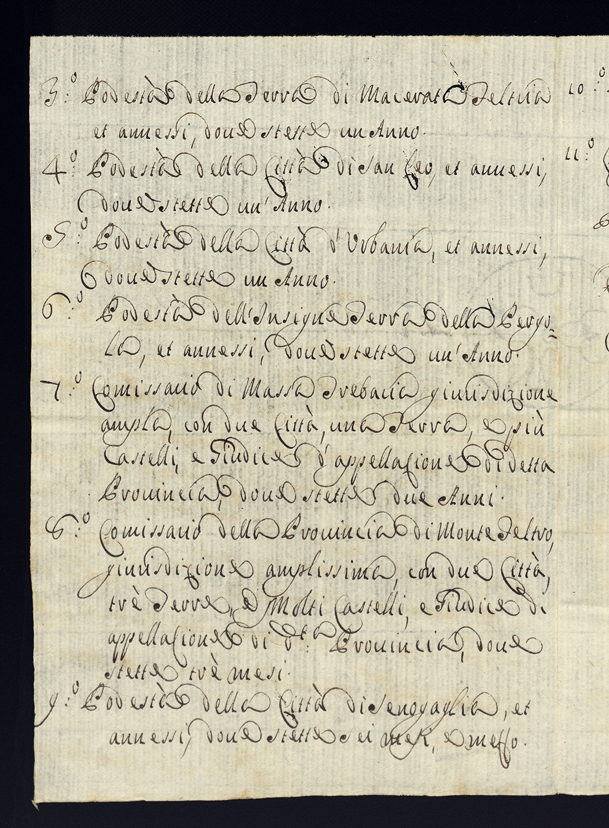 3:º Podestà della Terra di Macerata Feltria
et annessi, doue stette un Anno.
4:º Podestà della Città di San Leo, et annessi,
doue stette un' Anno.
5:º Podestà della Città d'Urbania, et annessi,
doue stette un Anno.
6:º Podestà dell'Insigne Terra della Pergo=
la, et annessi, doue stette un' Anno.
7:º Comissario di Massa Trebaria giurisdizione
ampla, con due Città, una Terra, e più
Castelli, e Giudice d'appellazione di detta
Prouincia, doue stette due Anni.
8:º Comissario della Prouincia di Monte Feltro,
giurisdizione amplissima, con due Città,
trè Terre, e Molti Castelli, e Giudice di
appellazione di d:ta Prouincia, doue
stette trè mesi.
9:º Podestà della Città di Senogaglia, et
annessi, doue stette sei mesi, e messo.
10:º
11:º